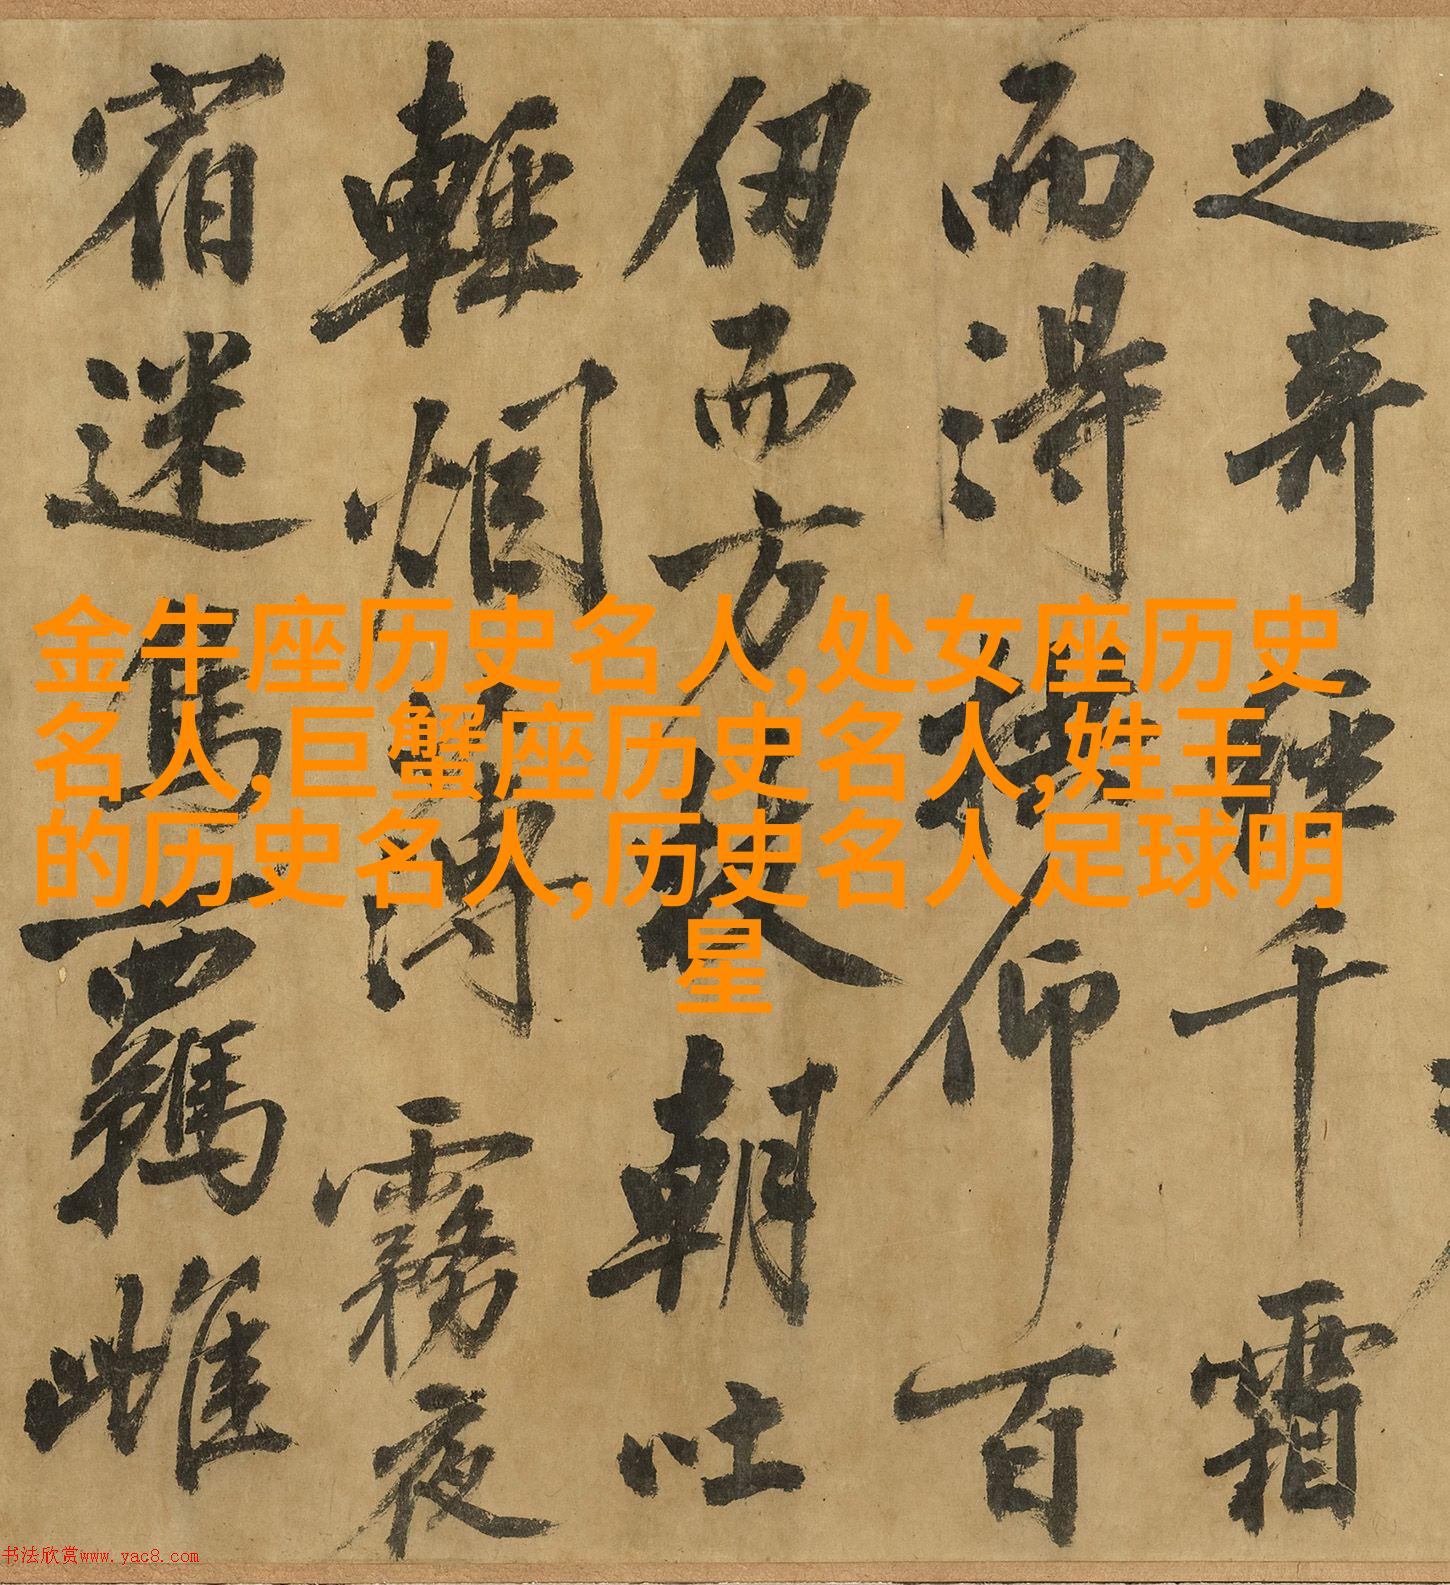 金牛座历史名人,处女座历史
名人,巨蟹座历史名人,姓王
的历史名人,历史名人足球明
星
之奇經千霜
而得拱仰百
仞而方枝朝吐
輕烟薄霧夜
宿迷鳥羈雌
书法欣赏www.yac8.com